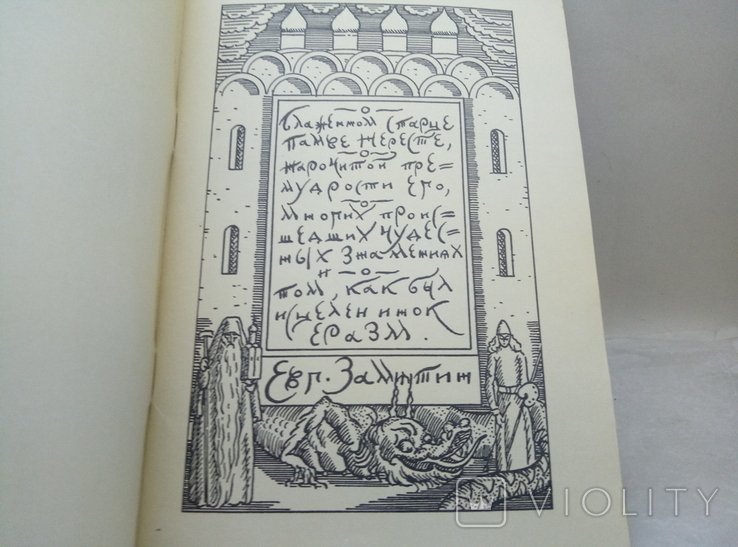 О
блаженном старце
Памве Нересте,
о
нарочитой пре=
мудрости его,
о
многих проис=
шедших чудес=
ных знамениях
и о
том, как был
исцелен инок
Еразм.
Евг. Замятин
VIOLITY